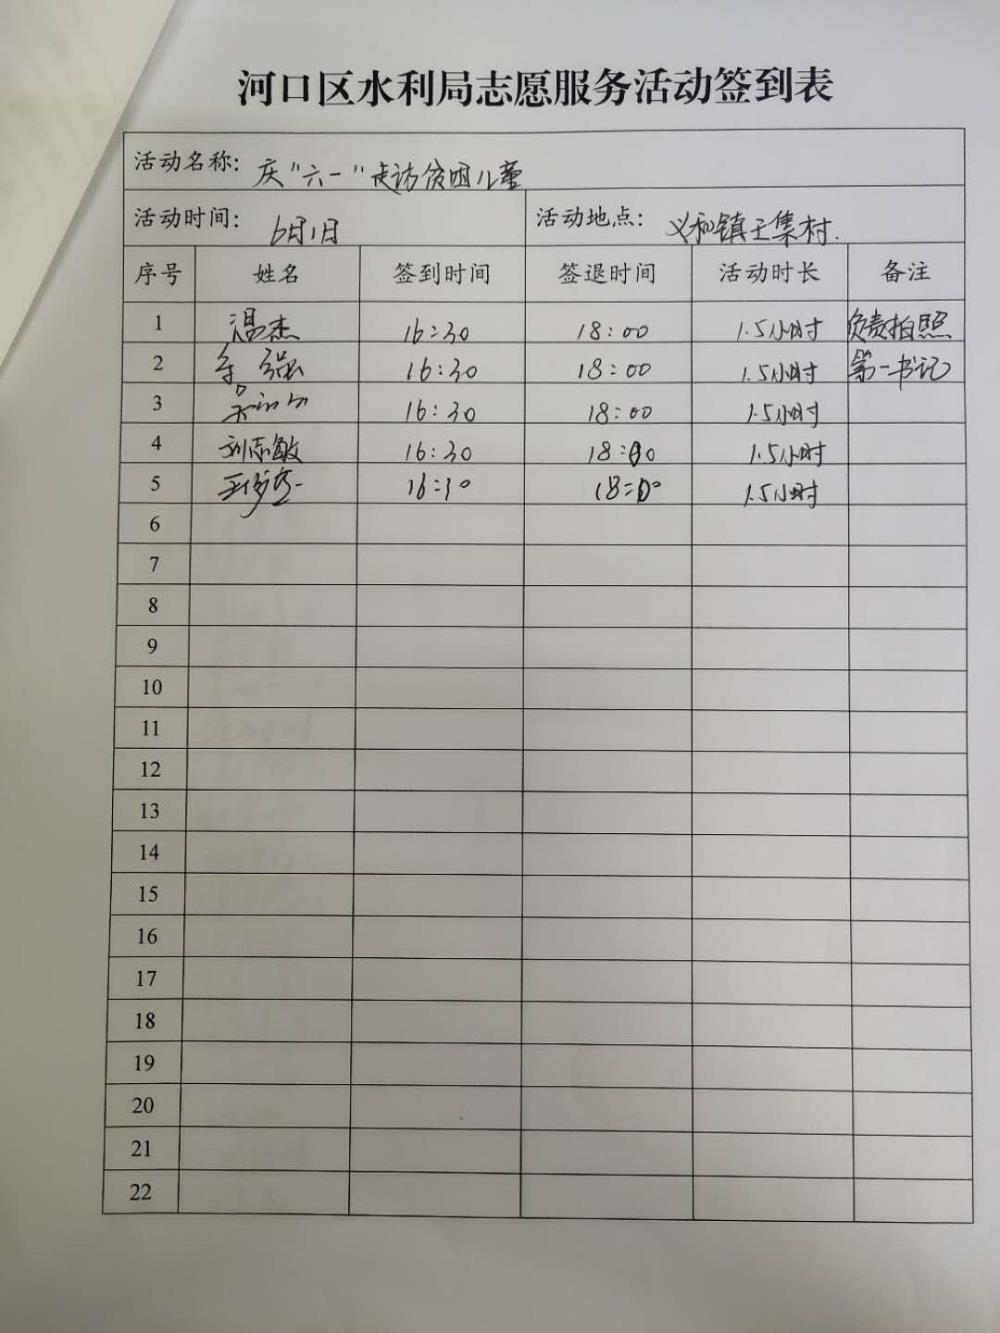 河口区水利局志愿服务活动签到表
活动名称: 庆"六一"走访贫困儿童
活动时间: 6月1日 活动地点: 义和镇王集村.
序号 姓名 签到时间 签退时间 活动时长 备注
1 温杰 16:30 18:00 1.5小时 负责拍照
2 强 16:30 18:00 1.5小时 第一书记
3 16:30 18:00 1.5小时
4 刘志敏 16:30 18:00 1.5小时
5 16:30 18:00 1.5小时
6
7
8
9
10
11
12
13
14
15
16
17
18
19
20
21
22